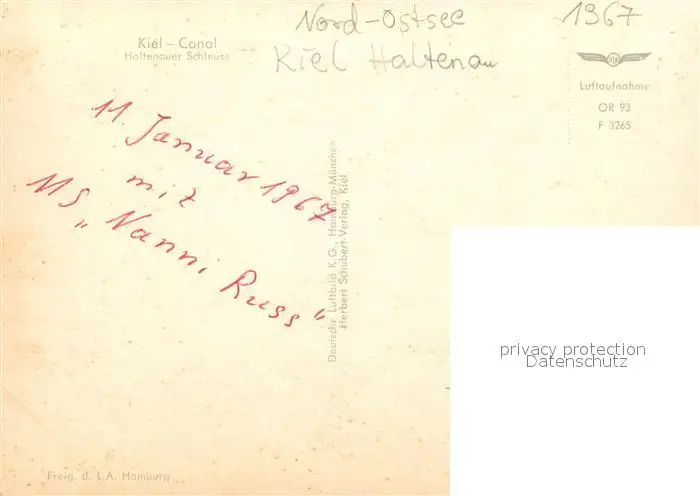 Nord-Ostsee 1967
Kiel Haltenau
Kiel – Canal
Holtenauer Schleuse
Luftaufnahme
OR 93
F 3265
11. Januar 1967
mit
MS „Nanni Russ“
Deutsche Luftbild K.G., Hamburg-München
Herbert Schubert-Verlag, Kiel
Freig. d. L.A. Hamburg
privacy protection
Datenschutz